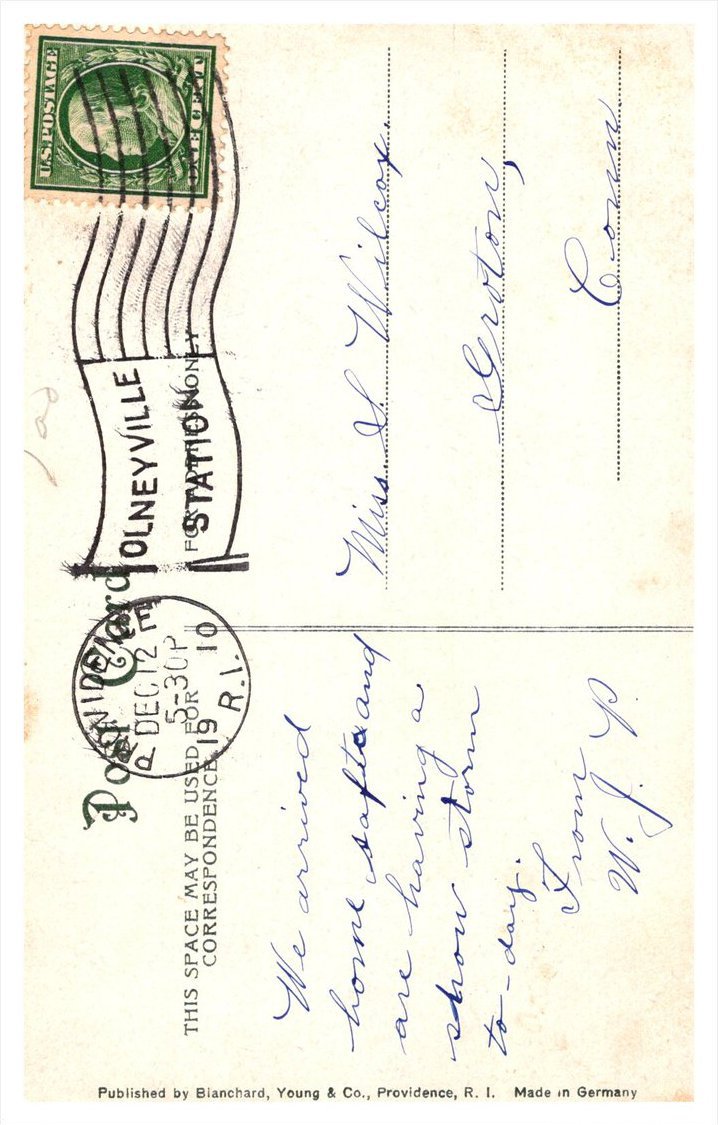 Post Card
THIS SPACE MAY BE USED FOR
CORRESPONDENCE
FOR ADDRESS ONLY
PROVIDENCE
DEC 12
5-30P
19 10
R.I.
OLNEYVILLE
STATION
U.S. POSTAGE
ONE CENT
We arrived
home safte and
are having a
show storm
to-day.
From
W. J. P.
Miss S Wilcox.
Groton,
Conn.
Published by Blanchard, Young & Co., Providence, R. I. Made in Germany